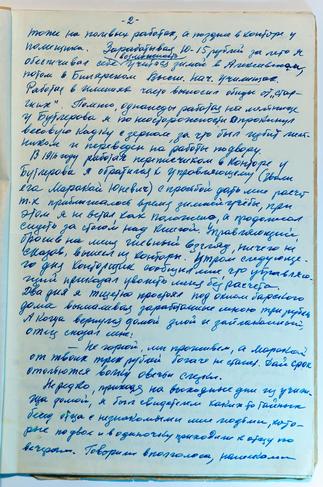 -2-
тоже на полевых работах, а позднее в конторе у
помещика. Зарабатывая 10-15 рублей за лето я
возможность
обеспечивал себе учиться зимой в Алексеевском,
потом в Билярском Высш. нач. училищах.
Работая в имениях часто выносил обиды от „стар-
ших". Помню, однажды работая на мельнице
у Бутлерова я по неосторожности опрокинул
весовую кадку с зерном за что был избит
и переведен на работы по двору.
В 1916 году работая переписчиком в конторе у
Бутлерова я обратился к управляющему (звали
его Маракой Юневич) с просьбой дать мне расчет
т.к. приближалось время зимней учебы, при
этом я не встал как положено, а продолжал
сидеть за столом над книгой. Управляющий,
бросив на меня гневный взгляд, ничего не
сказав, вышел из конторы. Утром следующе-
го дня конторщик сообщил мне что управляю-
щий приказал уволить меня без расчета.
Два дня я тщетно простоял под окном барского
дома вымаливая заработанные мною три рубля
А когда вернулся домой злой и заплаканный,
отец сказал мне:
— Не горюй, мы проживем, а Маракой
от твоих трех рублей богаче не станет. Дай срок
отольются волку овечьи слезы.
Нередко, приходя на выходные дни из учили-
ща домой, я был свидетелем каких то тайных
бесед отца с незнакомыми мне людьми, кото-
рые по двое и в одиночку приходили к отцу по
вечерам. Говорили вполголоса,